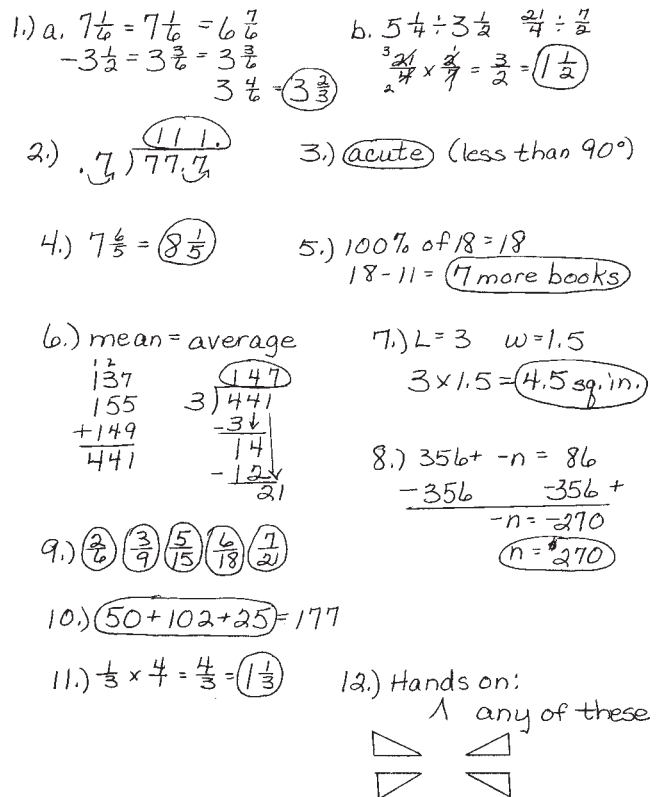 1.) a. 7 1/6 = 7 1/6 = 6 7/6
-3 1/2 = 3 3/6 = 3 3/6
3 4/6 = 3 2/3
b. 5 1/4 ÷ 3 1/2 21/4 ÷ 7/2
3 21/4 2 × 2/7 1 = 3/2 = 1 1/2
2.) 111.
.7 ) 77.7
3.) acute (less than 90°)
4.) 7 6/5 = 8 1/5
5.) 100% of 18 = 18
18 - 11 = 7 more books
6.) mean = average
1 2
137
155
+149
441
147
3 ) 441
-3
14
-12
21
7.) L = 3 w = 1.5
3 × 1.5 = 4.5 sq. in.
8.) 356 + -n = 86
-356 -356 +
-n = -270
n = 270
9.) 2/6 3/9 5/15 6/18 7/21
10.) 50 + 102 + 25 = 177
11.) 1/3 × 4/1 = 4/3 = 1 1/3
12.) Hands on:
1 any of these